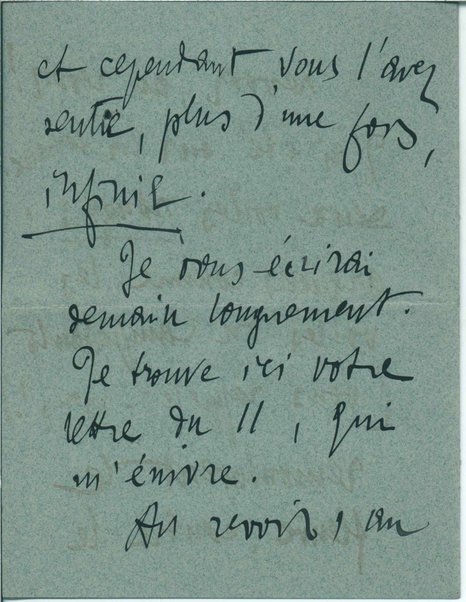 et cependant vous l'avez
sentie, plus d'une fois,
infinie.
Je vous écrirai
demain longuement.
Je trouve ici votre
lettre du 11, qui
m'énivre.
Au revoir, au